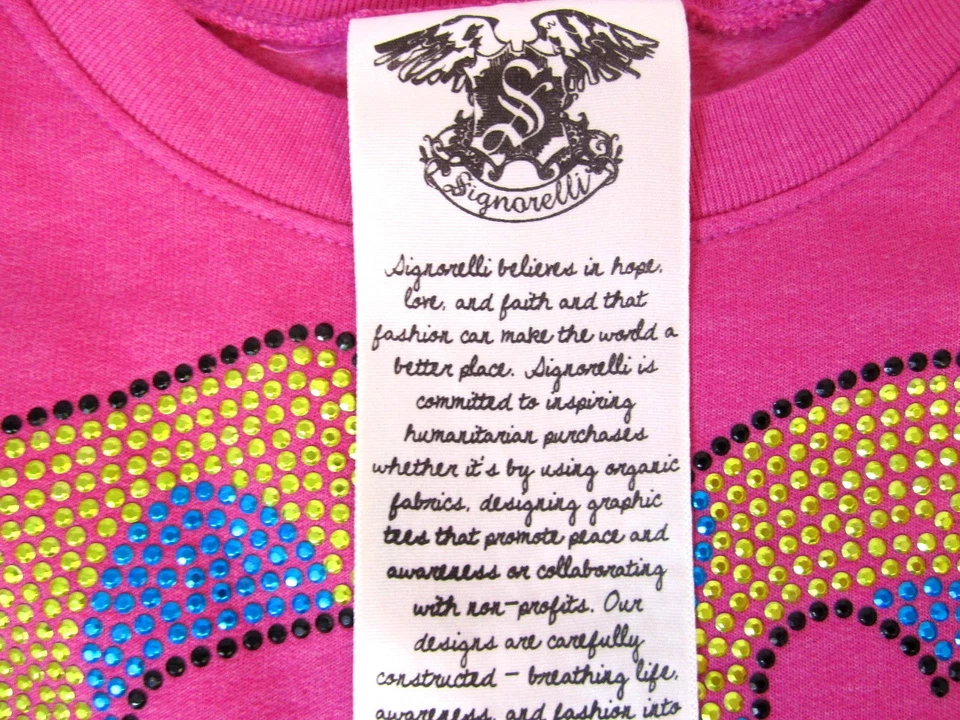 S
Signorelli
Signorelli believes in hope,
love, and faith and that
fashion can make the world a
better place. Signorelli is
committed to inspiring
humanitarian purchases
whether it's by using organic
fabrics, designing graphic
tees that promote peace and
awareness or collaborating
with non-profits. Our
designs are carefully
constructed - breathing life,
awareness, and fashion into